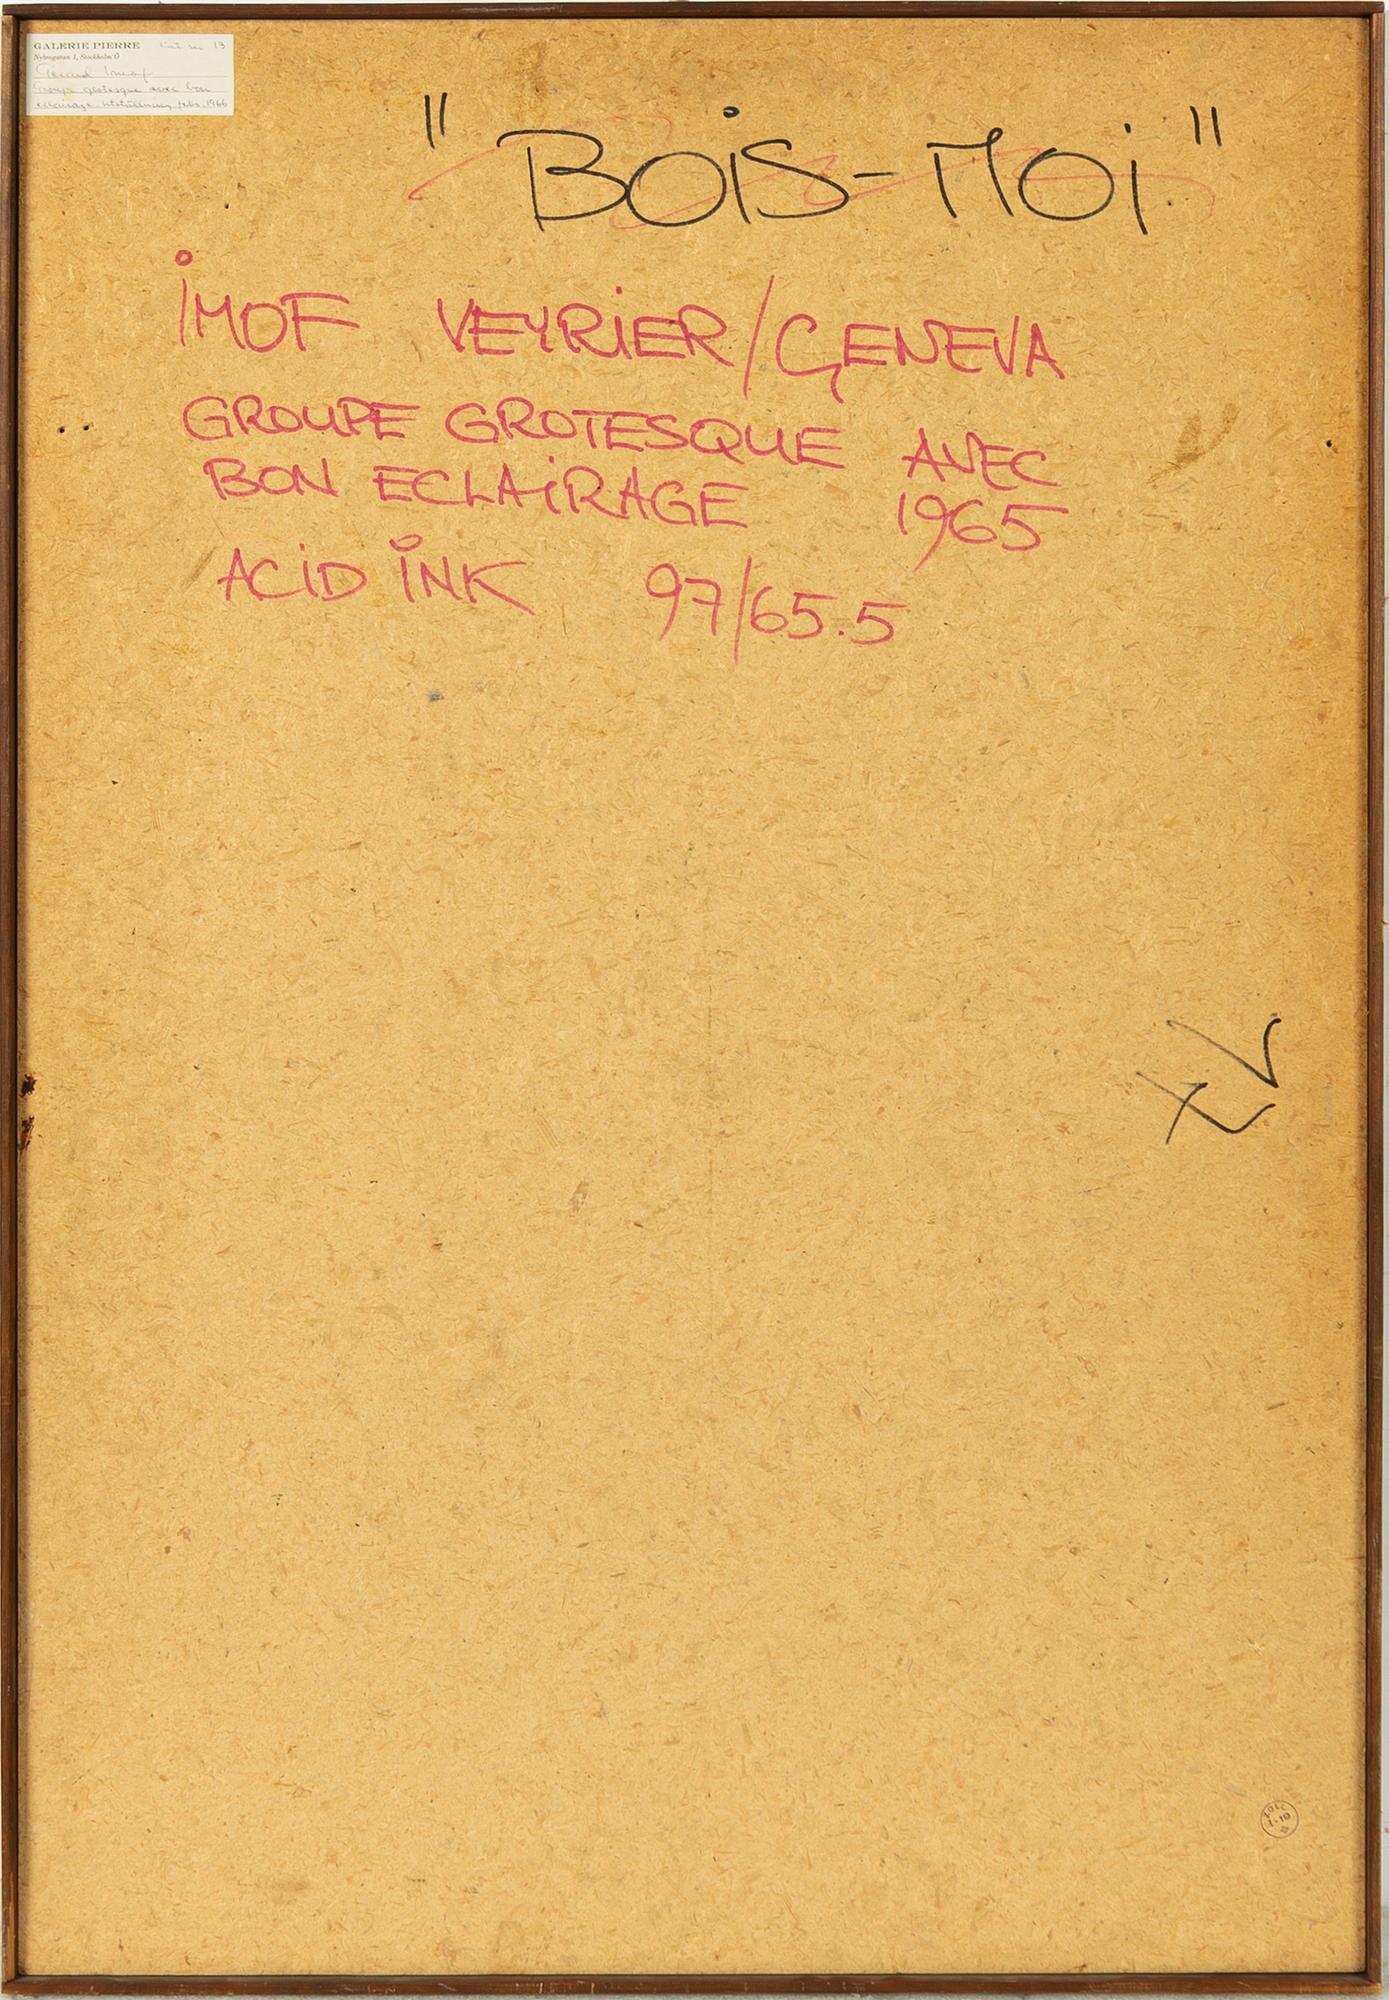 GALERIE PIERRE Kat nr 13
Nybrogatan 1, Stockholm Ö
Gérard Imof
Groupe grotesque avec bon
eclairage utställning febr. 1966
"BOiS-MOi"
iMOF VEYRiER/GENEVA
GROUPE GROTESQUE AVEC
BON ECLAiRAGE 1965
ACiD iNK 97/65.5
ZOLL